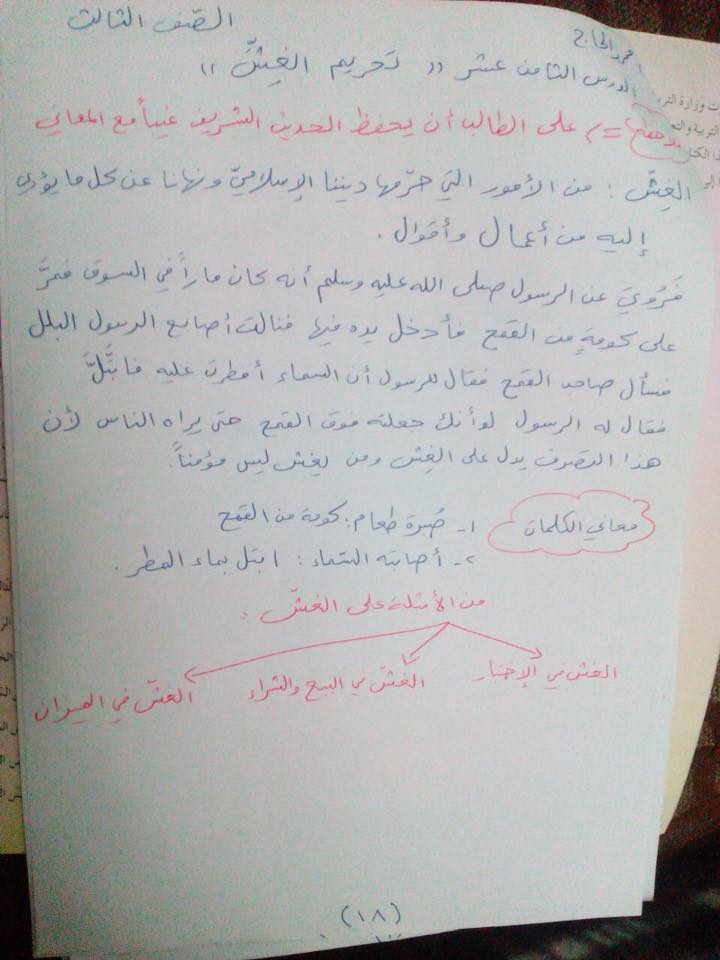 الصّف الثالث
أحمد الحاج
الدرس الثامن عشر " تحريم الغِشّ "
ملاحظة = على الطالب أن يحفظ الحديث الشريف غيباً مع المعاني
الغِشّ : من الأمور التي حرّمها ديننا الإسلاميّ ونهانا عن كل ما يؤدي
إليه من أعمال وأقوال .
فَرُوِيَ عن الرسول صلى الله عليه وسلم أنه كان ماراً في السوق فمرَّ
على كومةٍ من القمح فأدخل يده فيها فنالت أصابع الرسول البلل
فسأل صاحب القمح فقال للرسول أن السماء أمطرت عليه فابتَلَّ
فقال له الرسول لو أنك جعلته فوق القمح حتى يراه الناس لأن
هذا التصرف يدل على الغِش ومن يغش ليس مؤمناً.
معاني الكلمات
١- صُبرة طعام : كومة من القمح
٢- أصابته السّماء : ابتل بماء المطر .
من الأمثلة على الغشّ :
الغش في الإختبار
الغشّ في البيع والشراء
الغشّ في الميزان
(١٨)
ت وزارة التر
التربية والتع